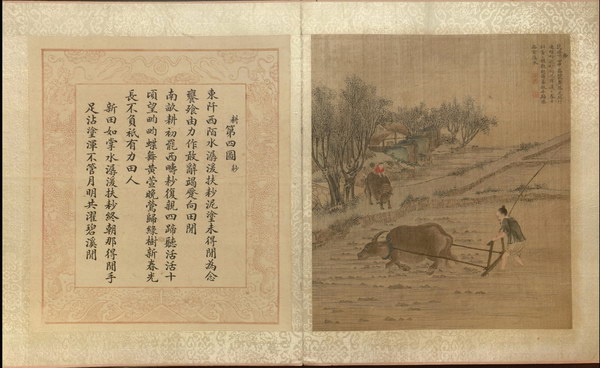 耕 第四圖 耖
東阡西陌水潺湲扶耖泥塗未得閒為念
饔飧由力作敢辭竭蹷向田間
南畝耕初罷西疇耖復親四蹄聽活活十
頃望畇畇蝶舞黃萱晚鶯歸綠樹新春光
長不負祗有力田人
新田如掌水潺湲扶耖終朝那得閒手
足沾塗渾不管月明共濯碧溪間